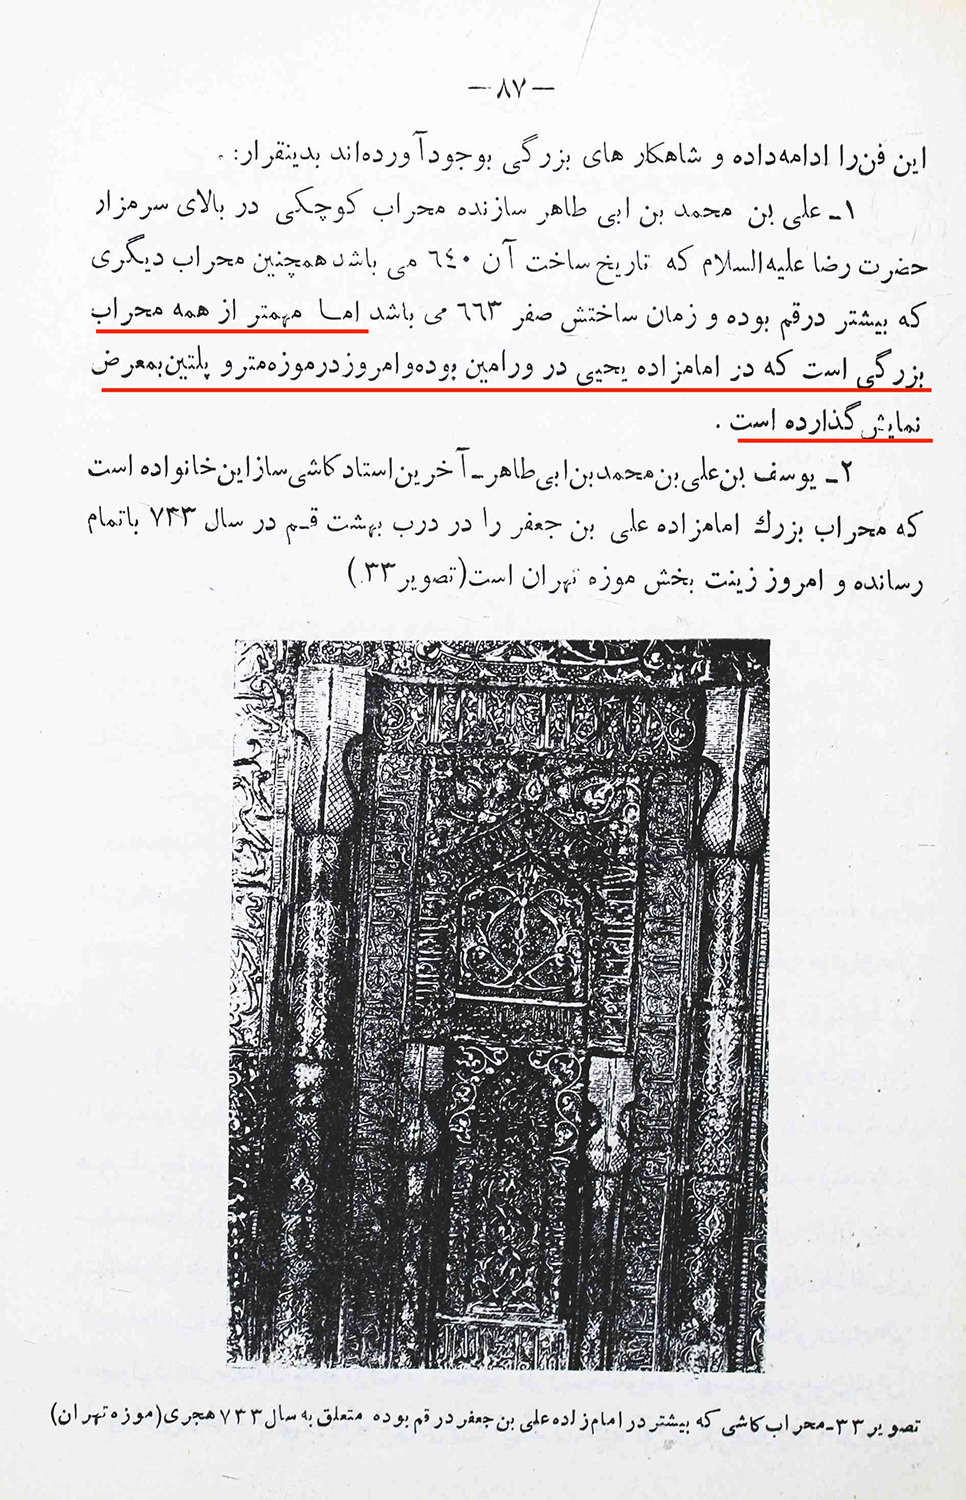 — ۸۷ —
این فن‌را ادامه‌داده و شاهکار های بزرگی بوجودآورده‌اند بدینقرار:
۱ـ علی بن محمد بن ابی طاهر سازنده محراب کوچکی در بالای سرمزار
حضرت رضا علیه‌السلام که تاریخ ساخت آن ٦٤٠ می باشد همچنین محراب دیگری
که بیشتر درقم بوده و زمان ساختش صفر ٦٦٣ می باشد اما مهمتر از همه محراب
بزرگی است که در امامزاده یحیی در ورامین بوده‌وامروز‌درموزه‌مترو پلتین‌بمعرض
نمایش گذارده است .
۲ـ یوسف بن‌علی‌بن‌محمدبن‌ابی‌طاهرـ آخرین‌استادکاشی‌ساز‌این‌خانواده است
که محراب بزرك امامزاده علی بن جعفر را در درب بهشت قم در سال ۷۳۳ باتمام
رسانده و امروز زینت بخش موزه تهران است(تصویر۳۳)
تصویر ۳۳ـ محراب‌کاشی که بیشتر در امام‌زاده‌علی بن‌جعفر در قم بوده متعلق به سال ۷۳۳ هجری(موزه تهران)